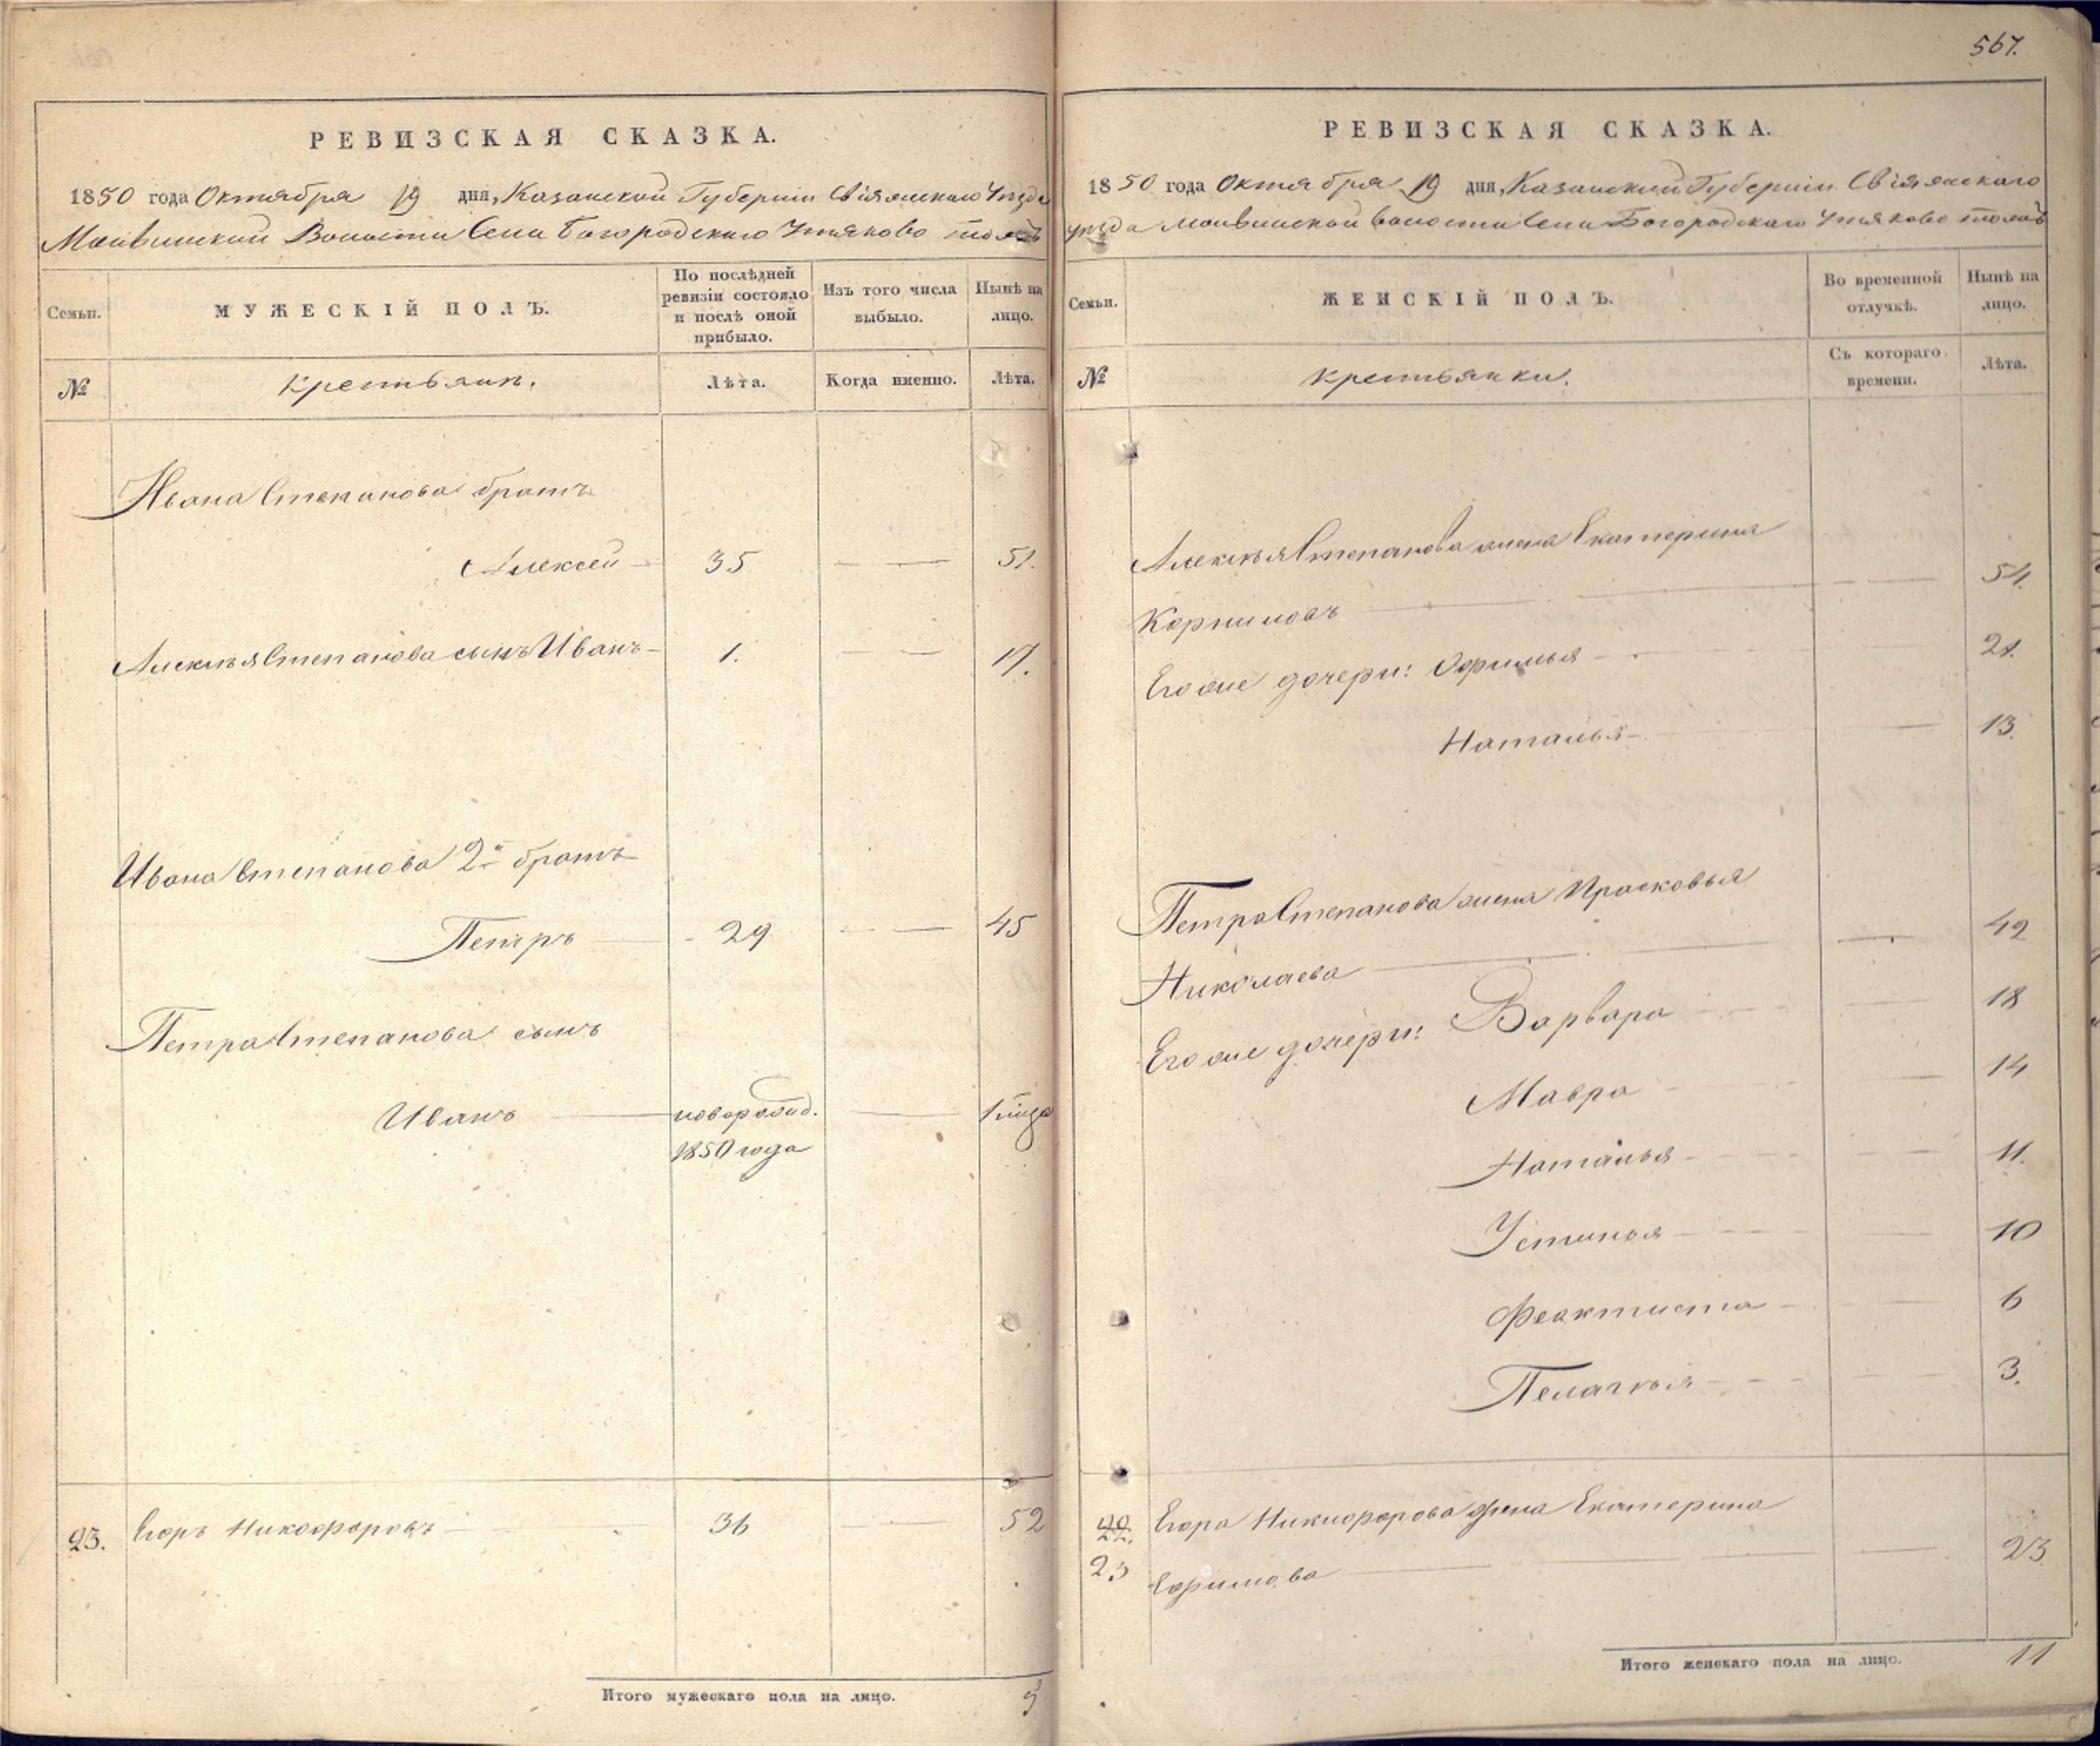 567.
РЕВИЗСКАЯ СКАЗКА.
1850 года Октября 19 дня, Казанской Губернiи Свiяжскаго Уѣзда
Волости Села Богородскаго Утяково тожъ
Семьи.
МУЖЕСКIЙ ПОЛЪ.
По послѣдней ревизiи состояло и послѣ оной прибыло.
Изъ того числа выбыло.
Нынѣ на лицо.
№
Крестьяне.
Лѣта.
Когда именно.
Лѣта.
Ивана Степанова братъ
Алексей 35 51.
Алексѣя Степанова сынъ Иванъ 1. 17.
Ивана Степанова 2й братъ
Петръ 29 45
Петра Степанова сынъ
Иванъ новорожд. 1 года
1850 года
23. Егоръ Никифоровъ 36 52
Итого мужескаго пола на лицо. 5
РЕВИЗСКАЯ СКАЗКА.
1850 года Октября 19 дня, Казанской Губернiи Свiяжскаго
уѣзда волости Села Богородскаго Утяково тожъ
Семьи.
ЖЕНСКIЙ ПОЛЪ.
Во временной отлучкѣ.
Нынѣ на лицо.
№
Крестьянки.
Съ котораго времени.
Лѣта.
Алексѣя Степанова жена Екатерина
Корнилова 54.
Его же дочери: Офимья 21.
Наталья 13.
Петра Степанова жена Прасковья
Николаева 42
Его же дочери: Варвара 18
Мавра 14
Наталья 11.
Устинья 10
Феактиста 6
Пелагѣя 3.
22. Егора Никифорова жена Екатерина
23 Ефимова 23
Итого женскаго пола на лицо. 11